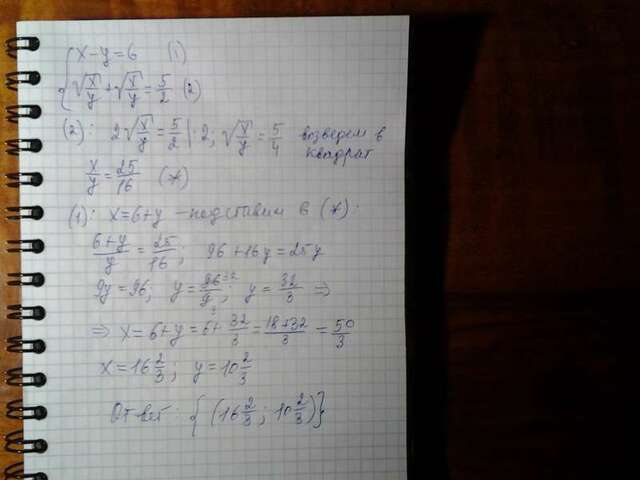 { x-y=6 (1)
√(x/y) + √(x/y) = 5/2 (2)
(2): 2√(x/y) = 5/2 | :2; √(x/y) = 5/4 возведем в квадрат
x/y = 25/16 (*)
(1): x=6+y – подставим в (*):
(6+y)/y = 25/16; 96+16y=25y
9y=96; y=96/9; y=32/3 ⇒
⇒ x=6+y=6+32/3=(18+32)/3=50/3
x=16 2/3; y=10 2/3
Ответ: {(16 2/3; 10 2/3)}